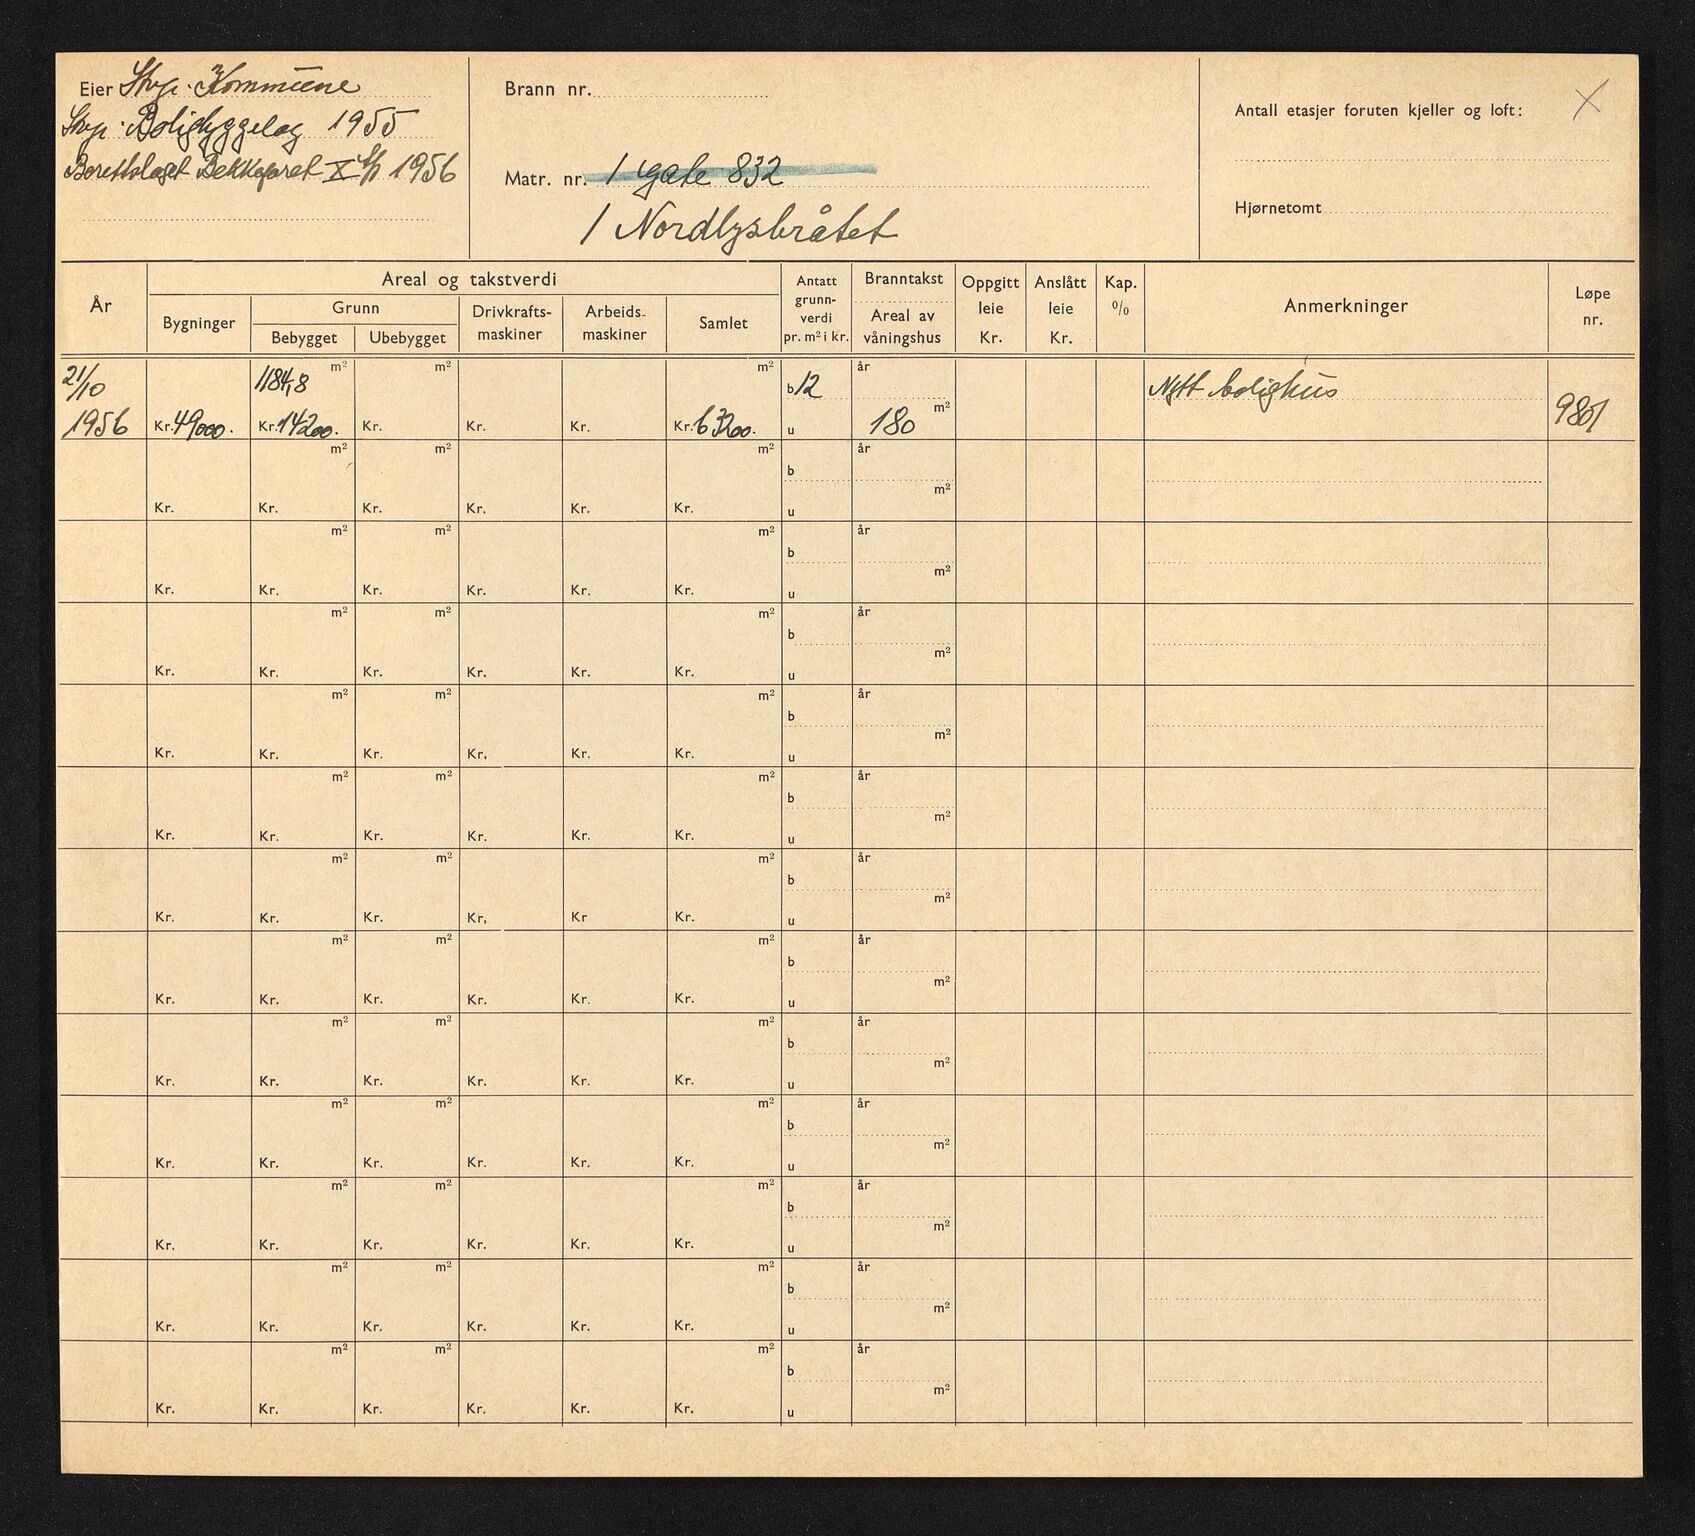 Eier Stvgr. Kommune
Stvgr. Boligbyggelag 1955
Borettslaget Bekkefaret X A/L 1956
Brann nr.
Matr. nr. 1 gate 832
1 Nordlysbråtet
Antall etasjer foruten kjeller og loft: X
Hjørnetomt
År
Areal og takstverdi
Bygninger
Grunn
Bebygget Ubebygget
Drivkrafts-
maskiner
Arbeids-
maskiner
Samlet
Antatt
grunn-
verdi
pr. m² i kr.
Branntakst
Areal av
våningshus
Oppgitt
leie
Kr.
Anslått
leie
Kr.
Kap.
%
Anmerkninger
Løpe
nr.
21/10 1184,8 m² m² m² b 12 år Nytt bolighus
1956 Kr. 49000. Kr. 14200. Kr. Kr. Kr. Kr. 63200. u 180 m² 9801
m² m² m² b år
Kr. Kr. Kr. Kr. Kr. Kr. u m²
m² m² m² b år
Kr. Kr. Kr. Kr. Kr. Kr. u m²
m² m² m² b år
Kr. Kr. Kr. Kr. Kr. Kr. u m²
m² m² m² b år
Kr. Kr. Kr. Kr. Kr. Kr. u m²
m² m² m² b år
Kr. Kr. Kr. Kr. Kr. Kr. u m²
m² m² m² b år
Kr. Kr. Kr. Kr, Kr Kr. u m²
m² m² m² b år
Kr. Kr. Kr. Kr. Kr. Kr. u m²
m² m² m² b år
Kr. Kr. Kr. Kr. Kr. Kr. u m²
m² m² m² b år
Kr. Kr. Kr. Kr. Kr. Kr. u m²
m² m² m² b år
Kr. Kr. Kr. Kr. Kr. Kr. u m²
m² m² m² b år
Kr. Kr. Kr. Kr. Kr. Kr. u m²
m² m² m² b år
Kr. Kr. Kr. Kr. Kr. Kr. u m²